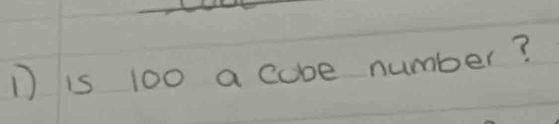 1) is 100 a cube number?